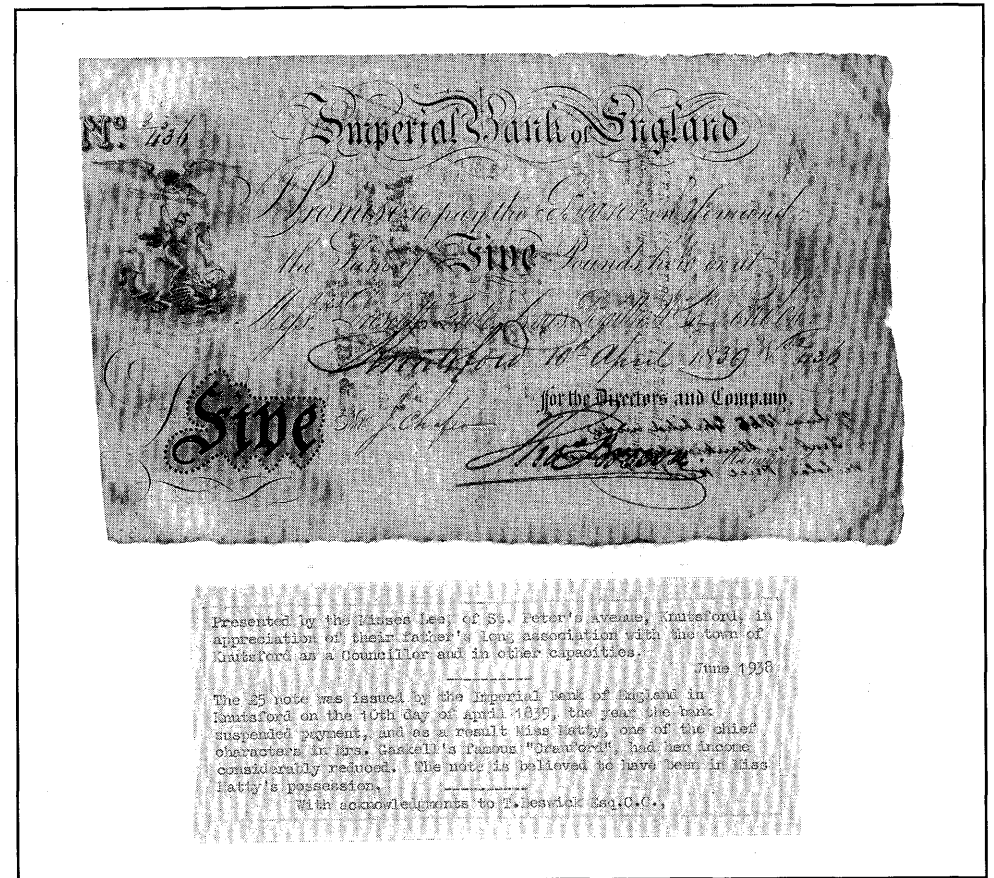 No. 434
Imperial Bank of England
Promise to pay the Bearer on Demand
the Sum of Five Pounds here or at
Messrs
Knutsford 10th April 1839 No 434
for the Directors and Company
Five
Thos Brown
Presented by the Misses Lee, of St. Peter's Avenue, Knutsford, in
appreciation of their father's long association with the town of
Knutsford as a Councillor and in other capacities.
June 1938
The £5 note was issued by the Imperial Bank of England in
Knutsford on the 10th day of April 1839, the year the bank
suspended payment, and as a result Miss Matty, one of the chief
characters in Mrs. Gaskell's famous "Cranford", had her income
considerably reduced. The note is believed to have been in Miss
Matty's possession.
With acknowledgments to T.Beswick Esq.C.C.,